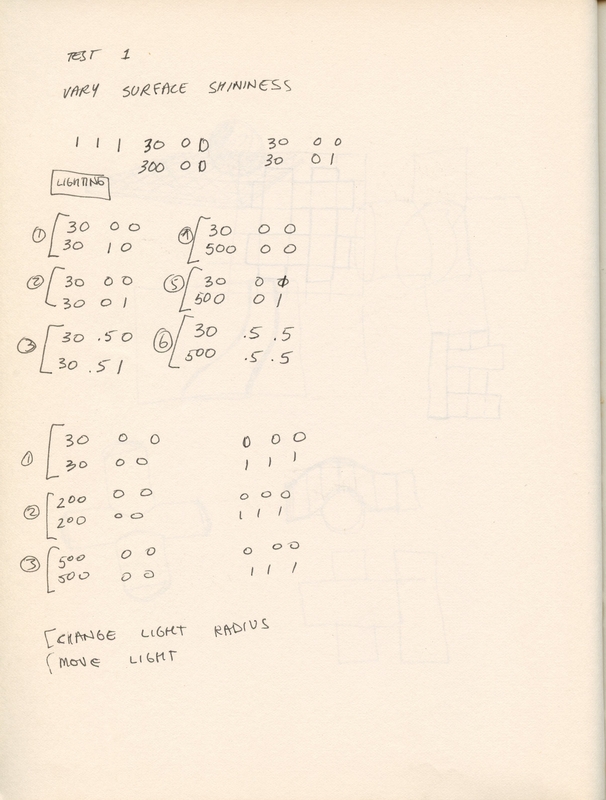 TEST 1
VARY SURFACE SHININESS
1 1 1 30 0 0 30 0 0
300 0 0 30 0 1
LIGHTING
① 30 0 0 ④ 30 0 0
30 1 0 500 0 0
② 30 0 0 ⑤ 30 0 0
30 0 1 500 0 1
③ 30 .5 0 ⑥ 30 .5 .5
30 .5 1 500 .5 .5
① 30 0 0 0 0 0
30 0 0 1 1 1
② 200 0 0 0 0 0
200 0 0 1 1 1
③ 500 0 0 0 0 0
500 0 0 1 1 1
CHANGE LIGHT RADIUS
MOVE LIGHT